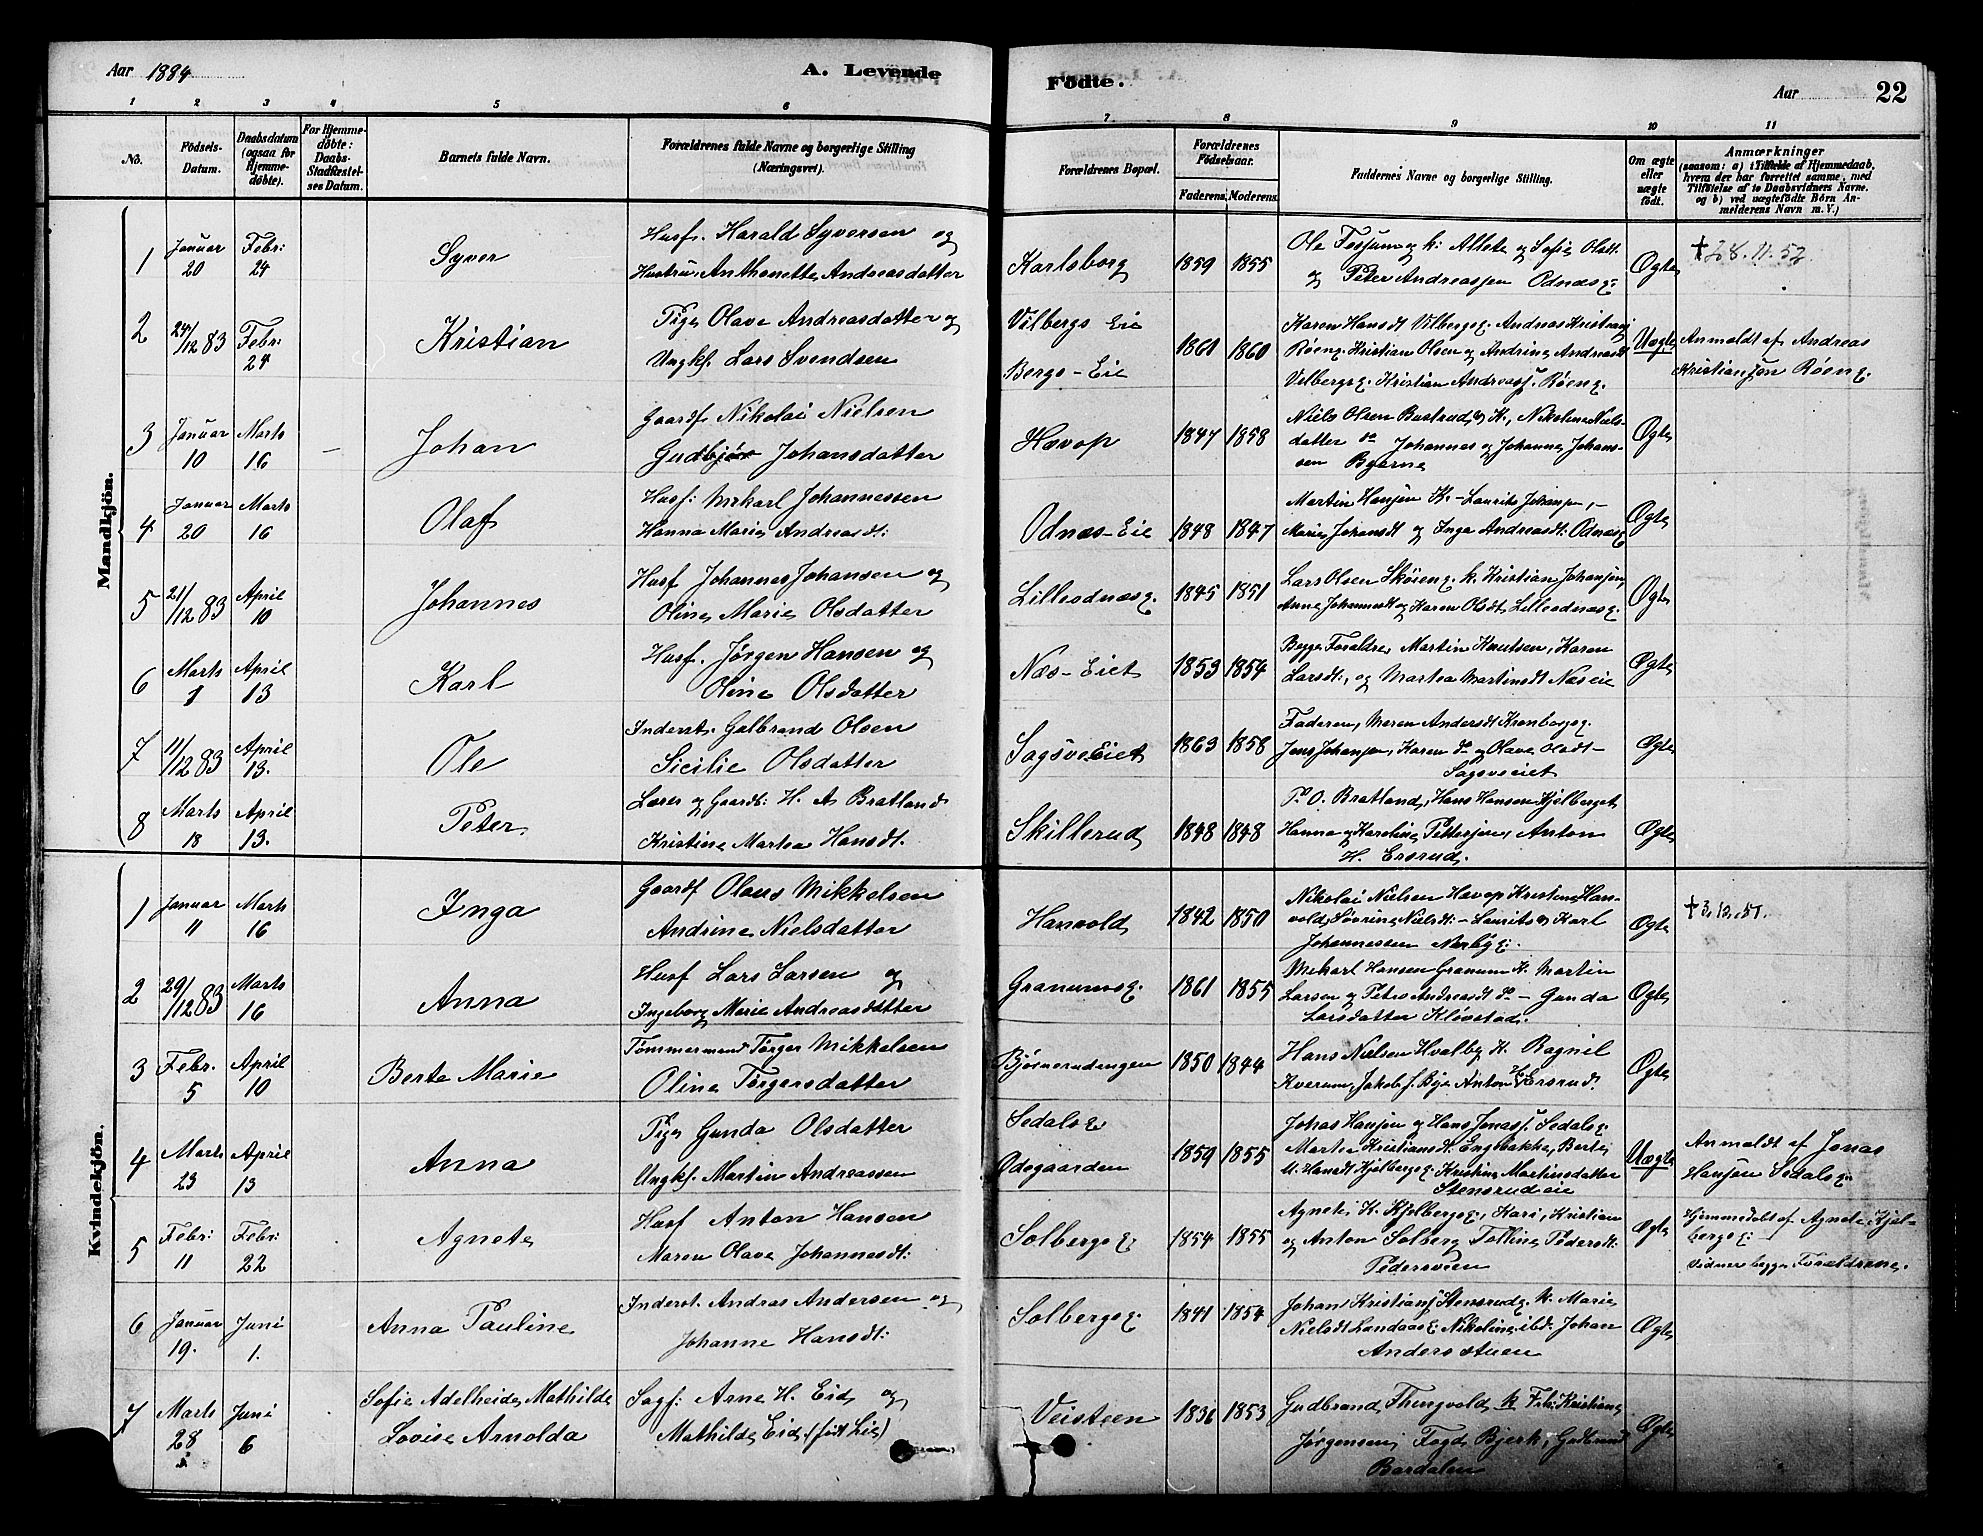 Aar 1884
A. Levende
Födte.
Aar 22
1 2 3 4 5 6 7 8 9 10 11
No.
Födsels-
Datum.
Daabsdatum
(ogsaa for
Hjemme-
döbte).
For Hjemme-
döbte:
Daabs-
Stadfæstel-
ses Datum.
Barnets fulde Navn.
Forældrenes fulde Navne og borgerlige Stilling
(Næringsvei).
Forældrenes Bopæl.
Forældrenes
Födselsaar.
Faderens. Moderens.
Faddernes Navne og borgerlige Stilling.
Om ægte
eller
uægte
født.
Anmærkninger
(saasom: a) i Tilfælde af Hjemmedaab,
hvem der har forrettet samme, med
Tilföielse af to Daabsvidners Navne.
og b) ved uægtefödte Börn An-
melderens Navn m. V.)
Mandkjön.
1 Januar 20 Febr: 24 Syver
Husf. Harald Syversen og
Hustru Anthonette Andreasdatter
Karlsborg 1859 1855
Ole Fossum og k: Allete og Sofie Olsdt.
og Peter Andreassen Odnæsg:
Ægte
† 28.11.52.
2 24/12 83 Febr: 24 Kristian
Pige Olave Andreasdatter og
Ungkf. Lars Svendsen
Vilbergs Eie
Bergs-Eie
1861 1860
Karen Hansdt Vilbergsg. Andreas Kristians
Røeng. Kristian Olsen og Andrine Andreasdt
Velbergsg. Kristian Andreass. Røeng.
Uægte
Anmeldt af Andreas
Kristiansen Røeng.
3 Januar 10 Marts 16 – Johan
Gaardf Nikolai Nielsen
Gudbjør Johansdatter
Hævop 1847 1858
Niels Olsen Bustrud, K., Nikoline Niels-
datter do Johannes og Johanne Johans-
sen Bjerne
Ægte
4 Januar 20 Marts 16 Olaf
Husf: Mekarl Johannessen
Hanna Marie Andreasdt:
Odnæs-Eie 1848 1847
Martin Hansen K. – Laurits Johansen, –
Marie Johansdt og Inga Andreasdt: Odnæsg
Ægte
5 21/12 83 April 10 Johannes
Husf Johannes Johansen og
Oline Marie Olsdatter
Lilleodnæsg. 1845 1851
Lars Olsen Skøieng. k. Kristian Johansen,
Anne Johannesdt og Karen Olsdt, Lilleodnæsg.
Ægte
6 Marts 1 April 13 Karl
Husf. Jørgen Hansen og
Oline Olsdatter
Næs-Eiet 1853 1854
Begge Foraldre, Martin Knutsen, Karen
Larsdt:, og Martea Martinsdt Næseie
Ægte
7 11/12 83 April 13. Ole
Inderst. Gulbrand Olsen
Sicilie Olsdatter
Sagsveeiet 1863 1858
Faderen, Maren Andersdt Kronborgsg.
Jens Johansen, Karen do og Olava Olsdt –
Sagsveeiet
Ægte
8 Marts 18 April 13. Peter
Lærer og Gaardb: H. A Bratland
Kristine Martea Hansdt.
Skillerud 1848 1848
P. O. Bratland, Hans Hansen Kjelberget
Hanna og Karoline Pettersen, Anton
H. Ersrud.
Ægte
Kvindekjön.
1 Januar 11 Marts 16 Inga
Gaardf Olaus Mikkelsen
Andrine Nielsdatter
Hanvold 1842 1850
Nikolai Nielsen Hævop Kristine Han-
vold, Søvrine Nielsdt: – Laurits &amp; Karl
Johannessen Nerbyg:
Ægte
† 3.12.51.
2 29/12 83 Marts 16 Anna
Husf Lars Larsen og
Ingeborg Marie Andreasdatter
Granumsg. 1861 1855
Mekarl Hansen Granum K. Martin
Larsen og Petra Andreasdt do – Gunda
Larsdatter Kløvstad.
Ægte
3 Febr. 5 April 10 Berte Marie
Tømmermand Torger Mikkelsen
Oline Torgersdatter
Bjørnerudengen 1850 1844
Hans Nielsen Hvalby K. Ragnil
Kverum, Jakob J. Bye Anton H Ersrud.
Ægte
4 Marts 23 April 13 Anna
Pige Gunda Olsdatter
Ungkf. Martin Andreassen
Sedalsg
Ødegaarden
1859 1855
Johas Hansen og Hans Jonass. Sedalsg.
Marte Kristiansdt. Engebakke, Berte
M. Hansdt Kjølbergsg. Kristine Martinsdatter
Stensrudeie
Uægte
Anmeldt af Jonas
Hansen Sedalsg.
5 Febr: 11 Febr: 22 Agnete
Husf Anton Hansen
Maren Olave Johannesdt:
Solbergsg. 1854 1855
Agnete K. Kjølbergsg., Kari, Kristian
og Anton Solberg Tolline Pedersdt:
Pedersveen
Ægte
Hjemmedøbt af Agnete Kjøl-
bergsg:
Vidner begge Forældrene.
6 Januar 19. Juni 1. Anna Pauline
Inderst. Andras Andersen og
Johanne Hansdt:
Solbergsg. 1841 1854
Johan Kristians. Stensrudg. k. Marie
Nielsdt Landaasg. Nikoline ibd. Johan
Andersstuen
Ægte
7 Marts 28 Juni 6 Sofie Adelheide Mathilde
Lovise Arnolda
Sagf: Arne H. Eid og
Mathilde Eid (født Lie)
Veisteen 1836 1853
Gudbrand Thingvold k Frk: Kristiane
Jørgensen, Fogd Bjerk, Gudbrand
Bardalen
Ægte